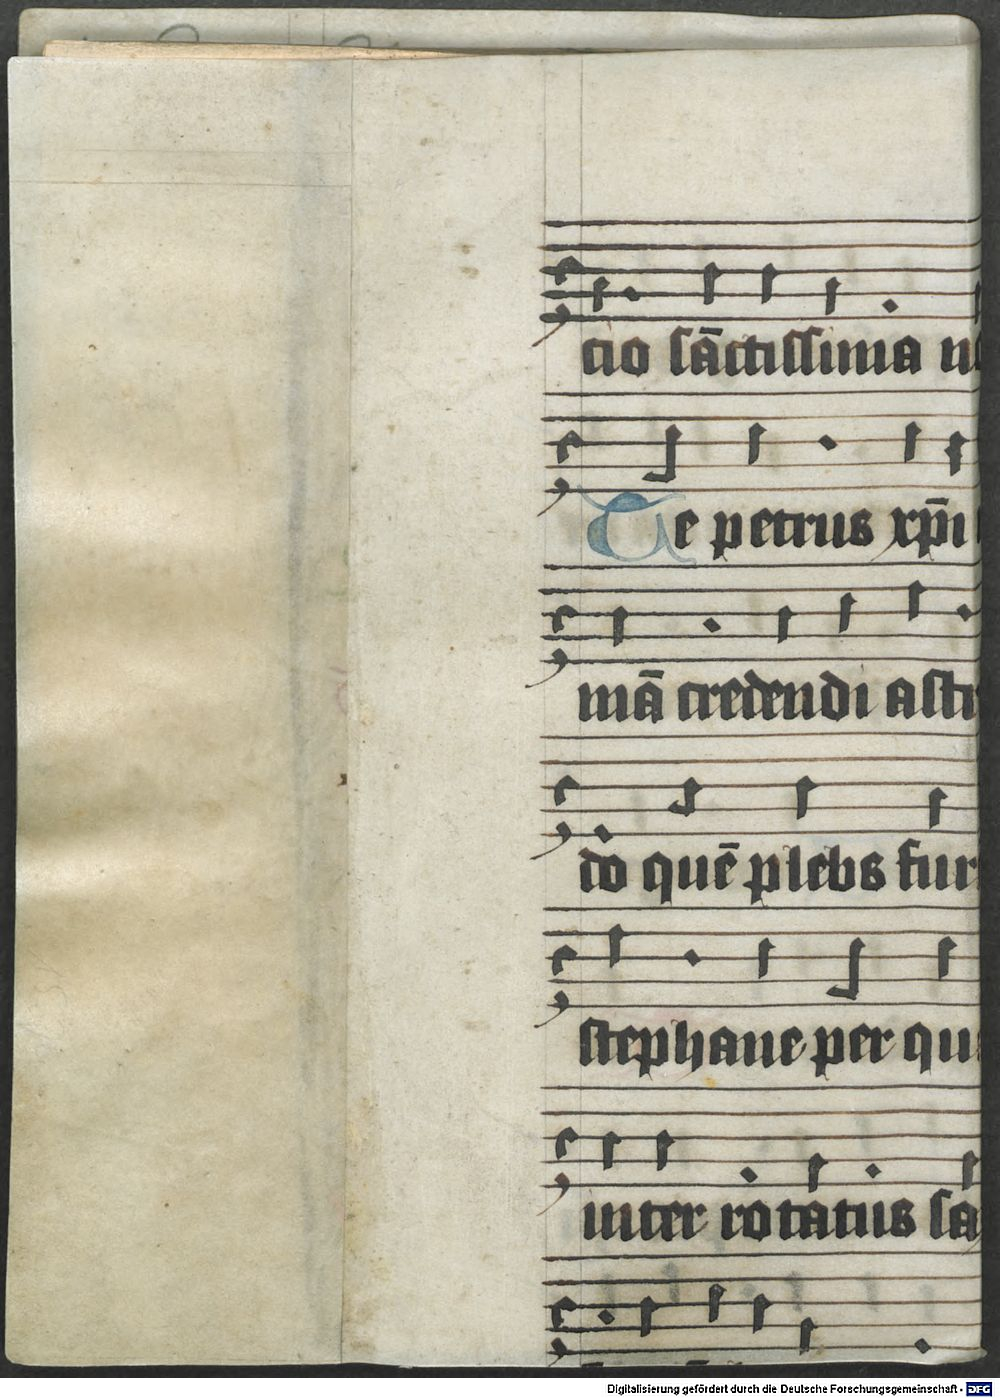 cio sāctissima
Te petrus xp̄i
mā credendi astr
do quē plebs fur
stephane per qu
inter rotatus sā
Digitalisierung gefördert durch die Deutsche Forschungsgemeinschaft - DFG